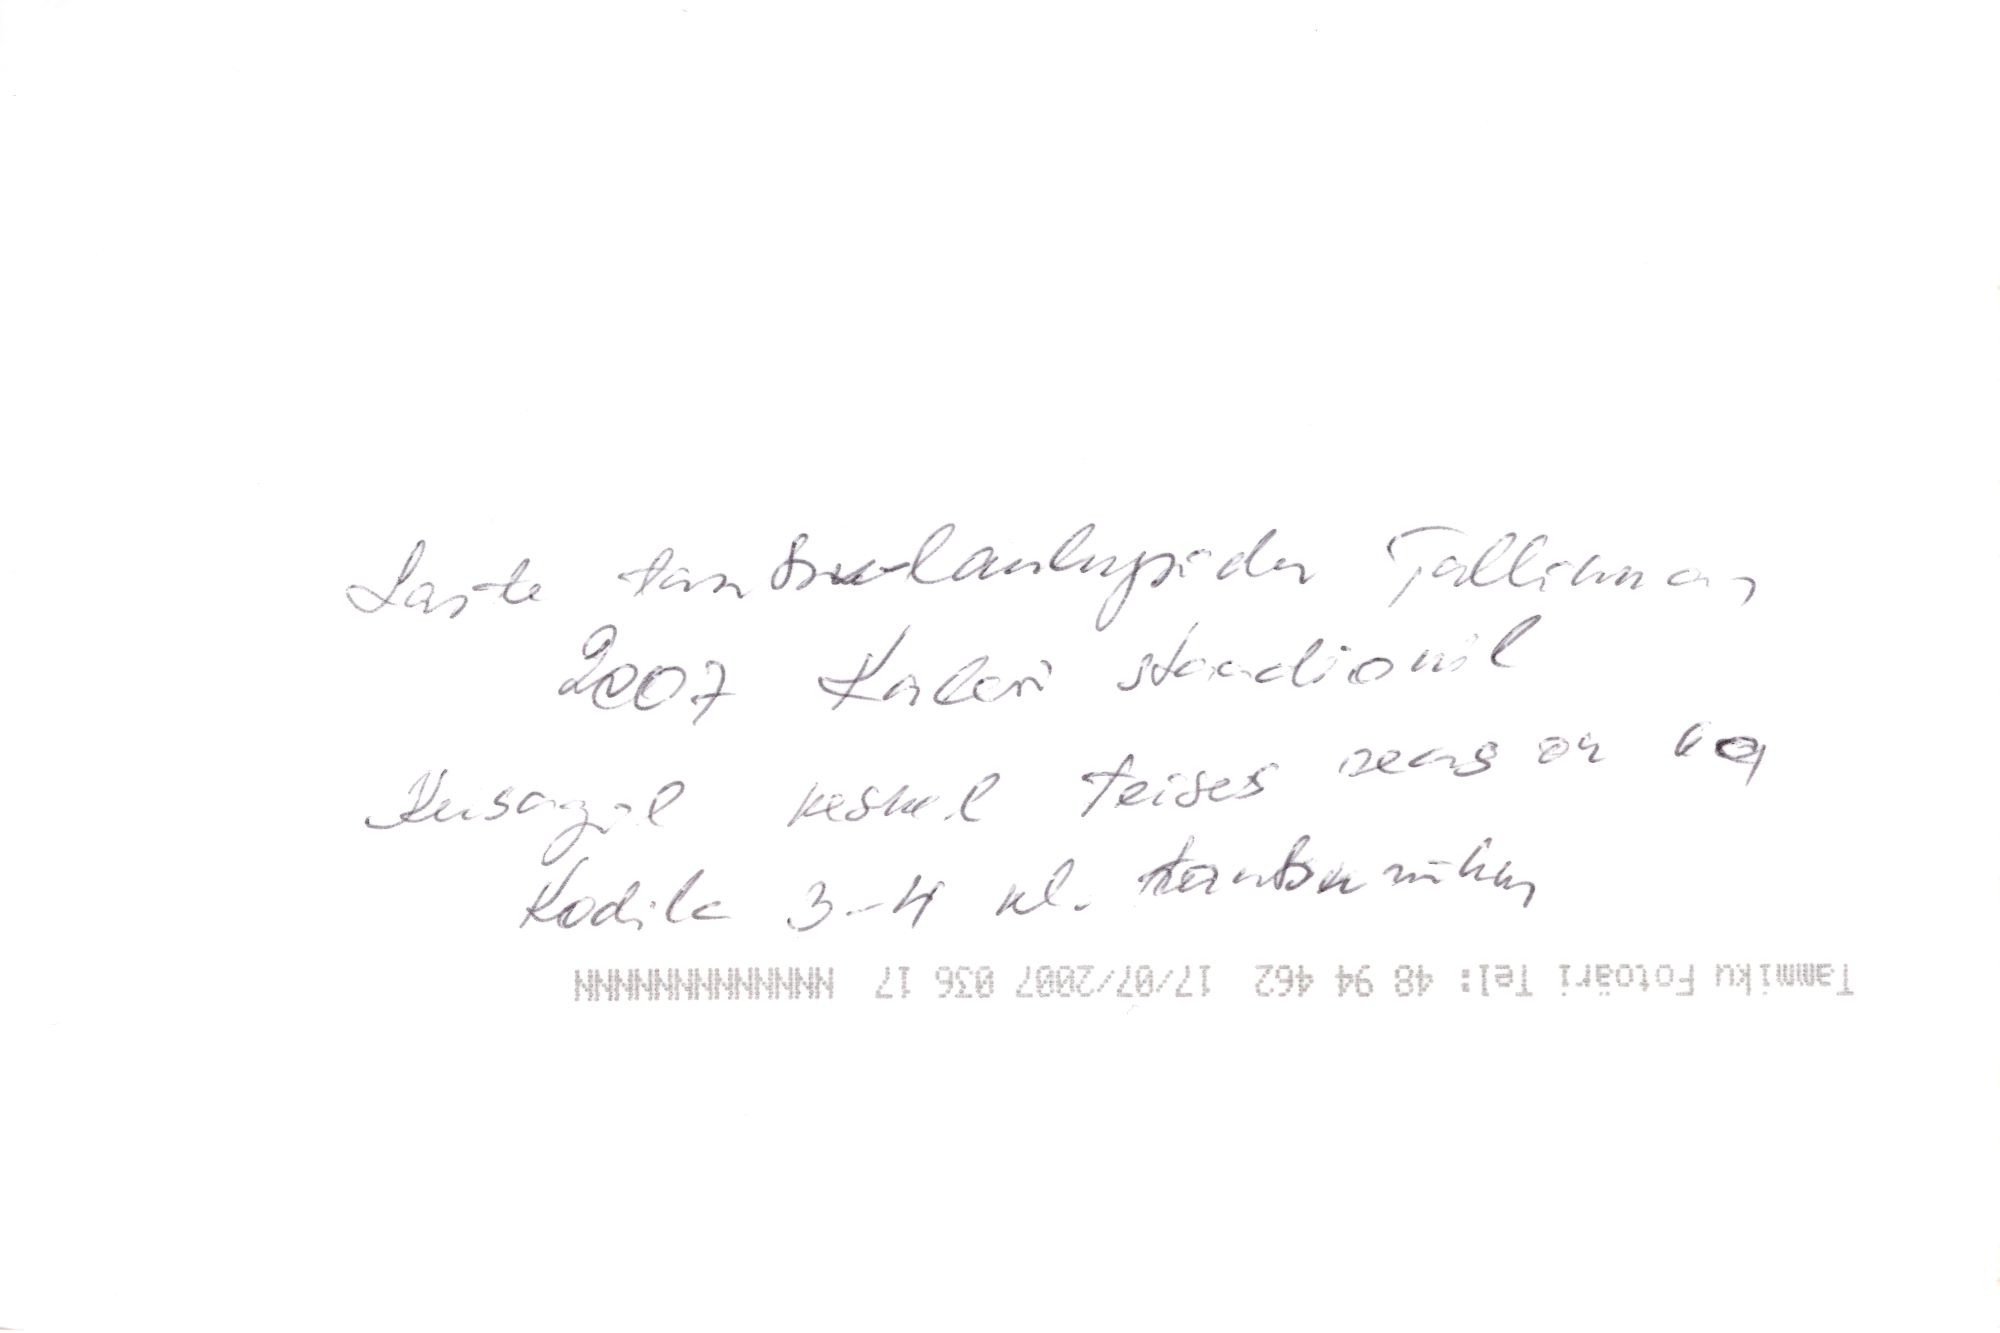 Laste tantsu-laulupidu Tallinnas
2007 Kalevi staadionil
Kusagil keskel teises reas on ka
Kodila 3-4 kl. tantsurühm
Tammiku Fotoäri Tel: 48 94 462 17/07/2007 036 17 NNNNNNNNNNNNN